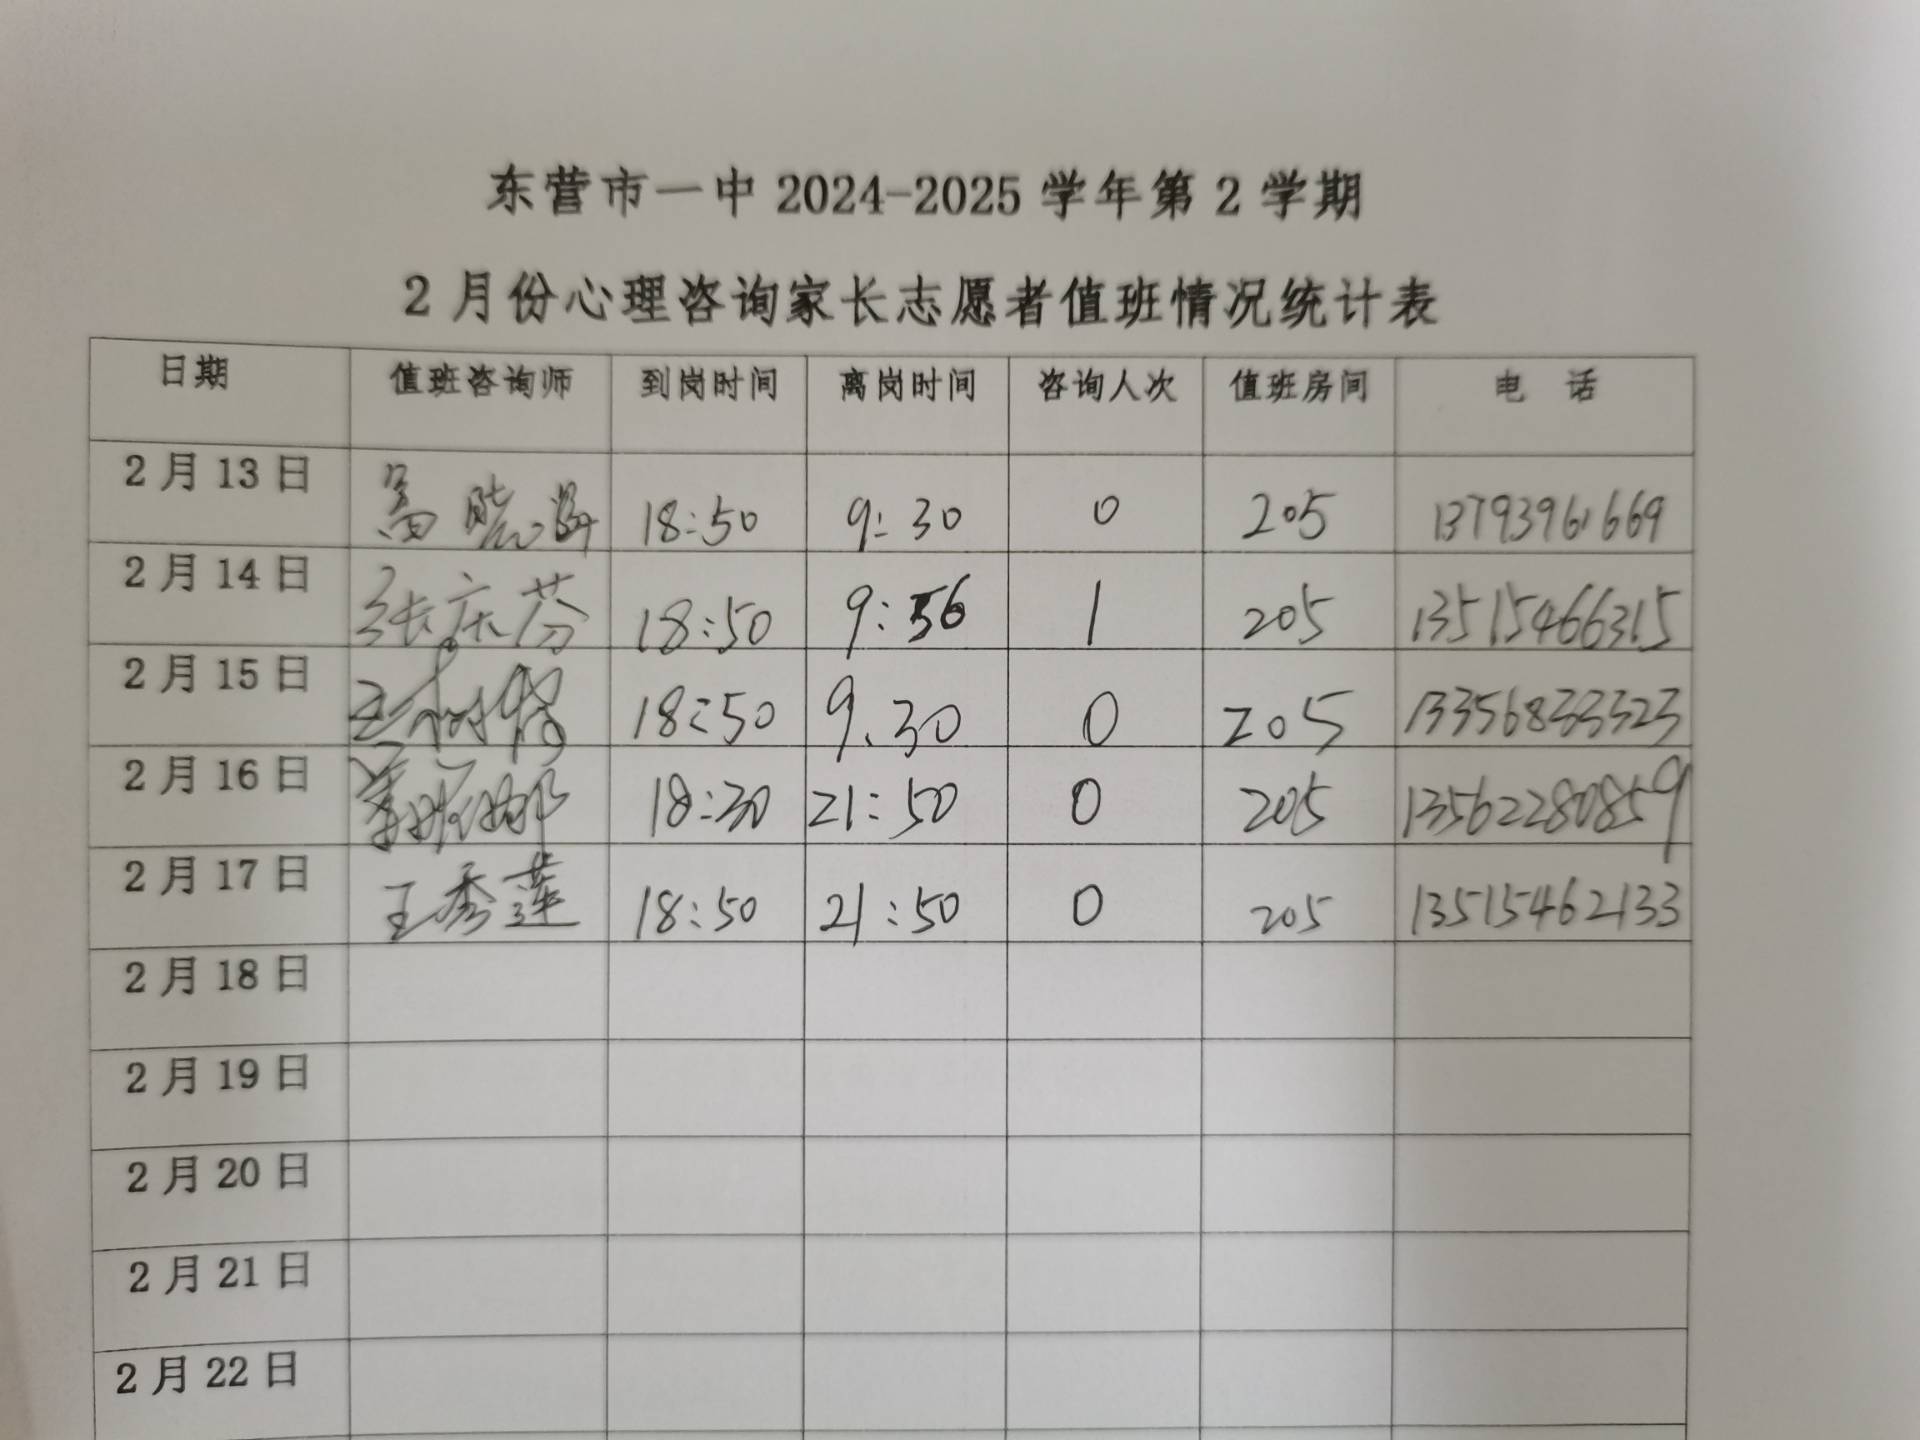 东营市一中 2024-2025 学年第 2 学期
2 月份心理咨询家长志愿者值班情况统计表
日期 值班咨询师 到岗时间 离岗时间 咨询人次 值班房间 电 话
2 月 13 日 18:50 9:30 0 205 13793961669
2 月 14 日 张庆芬 18:50 9:56 1 205 13515466315
2 月 15 日 18:50 9.30 0 205 13356833323
2 月 16 日 18:30 21:50 0 205 13562280859
2 月 17 日 王秀莲 18:50 21:50 0 205 13515462133
2 月 18 日
2 月 19 日
2 月 20 日
2 月 21 日
2 月 22 日